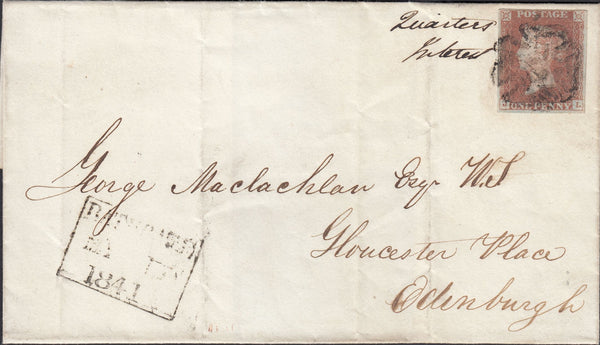 Quarters
Interest
POSTAGE
ONE PENNY
L
George Maclachlan Esqr W.S
Gloucester Place
Edenburgh
1841